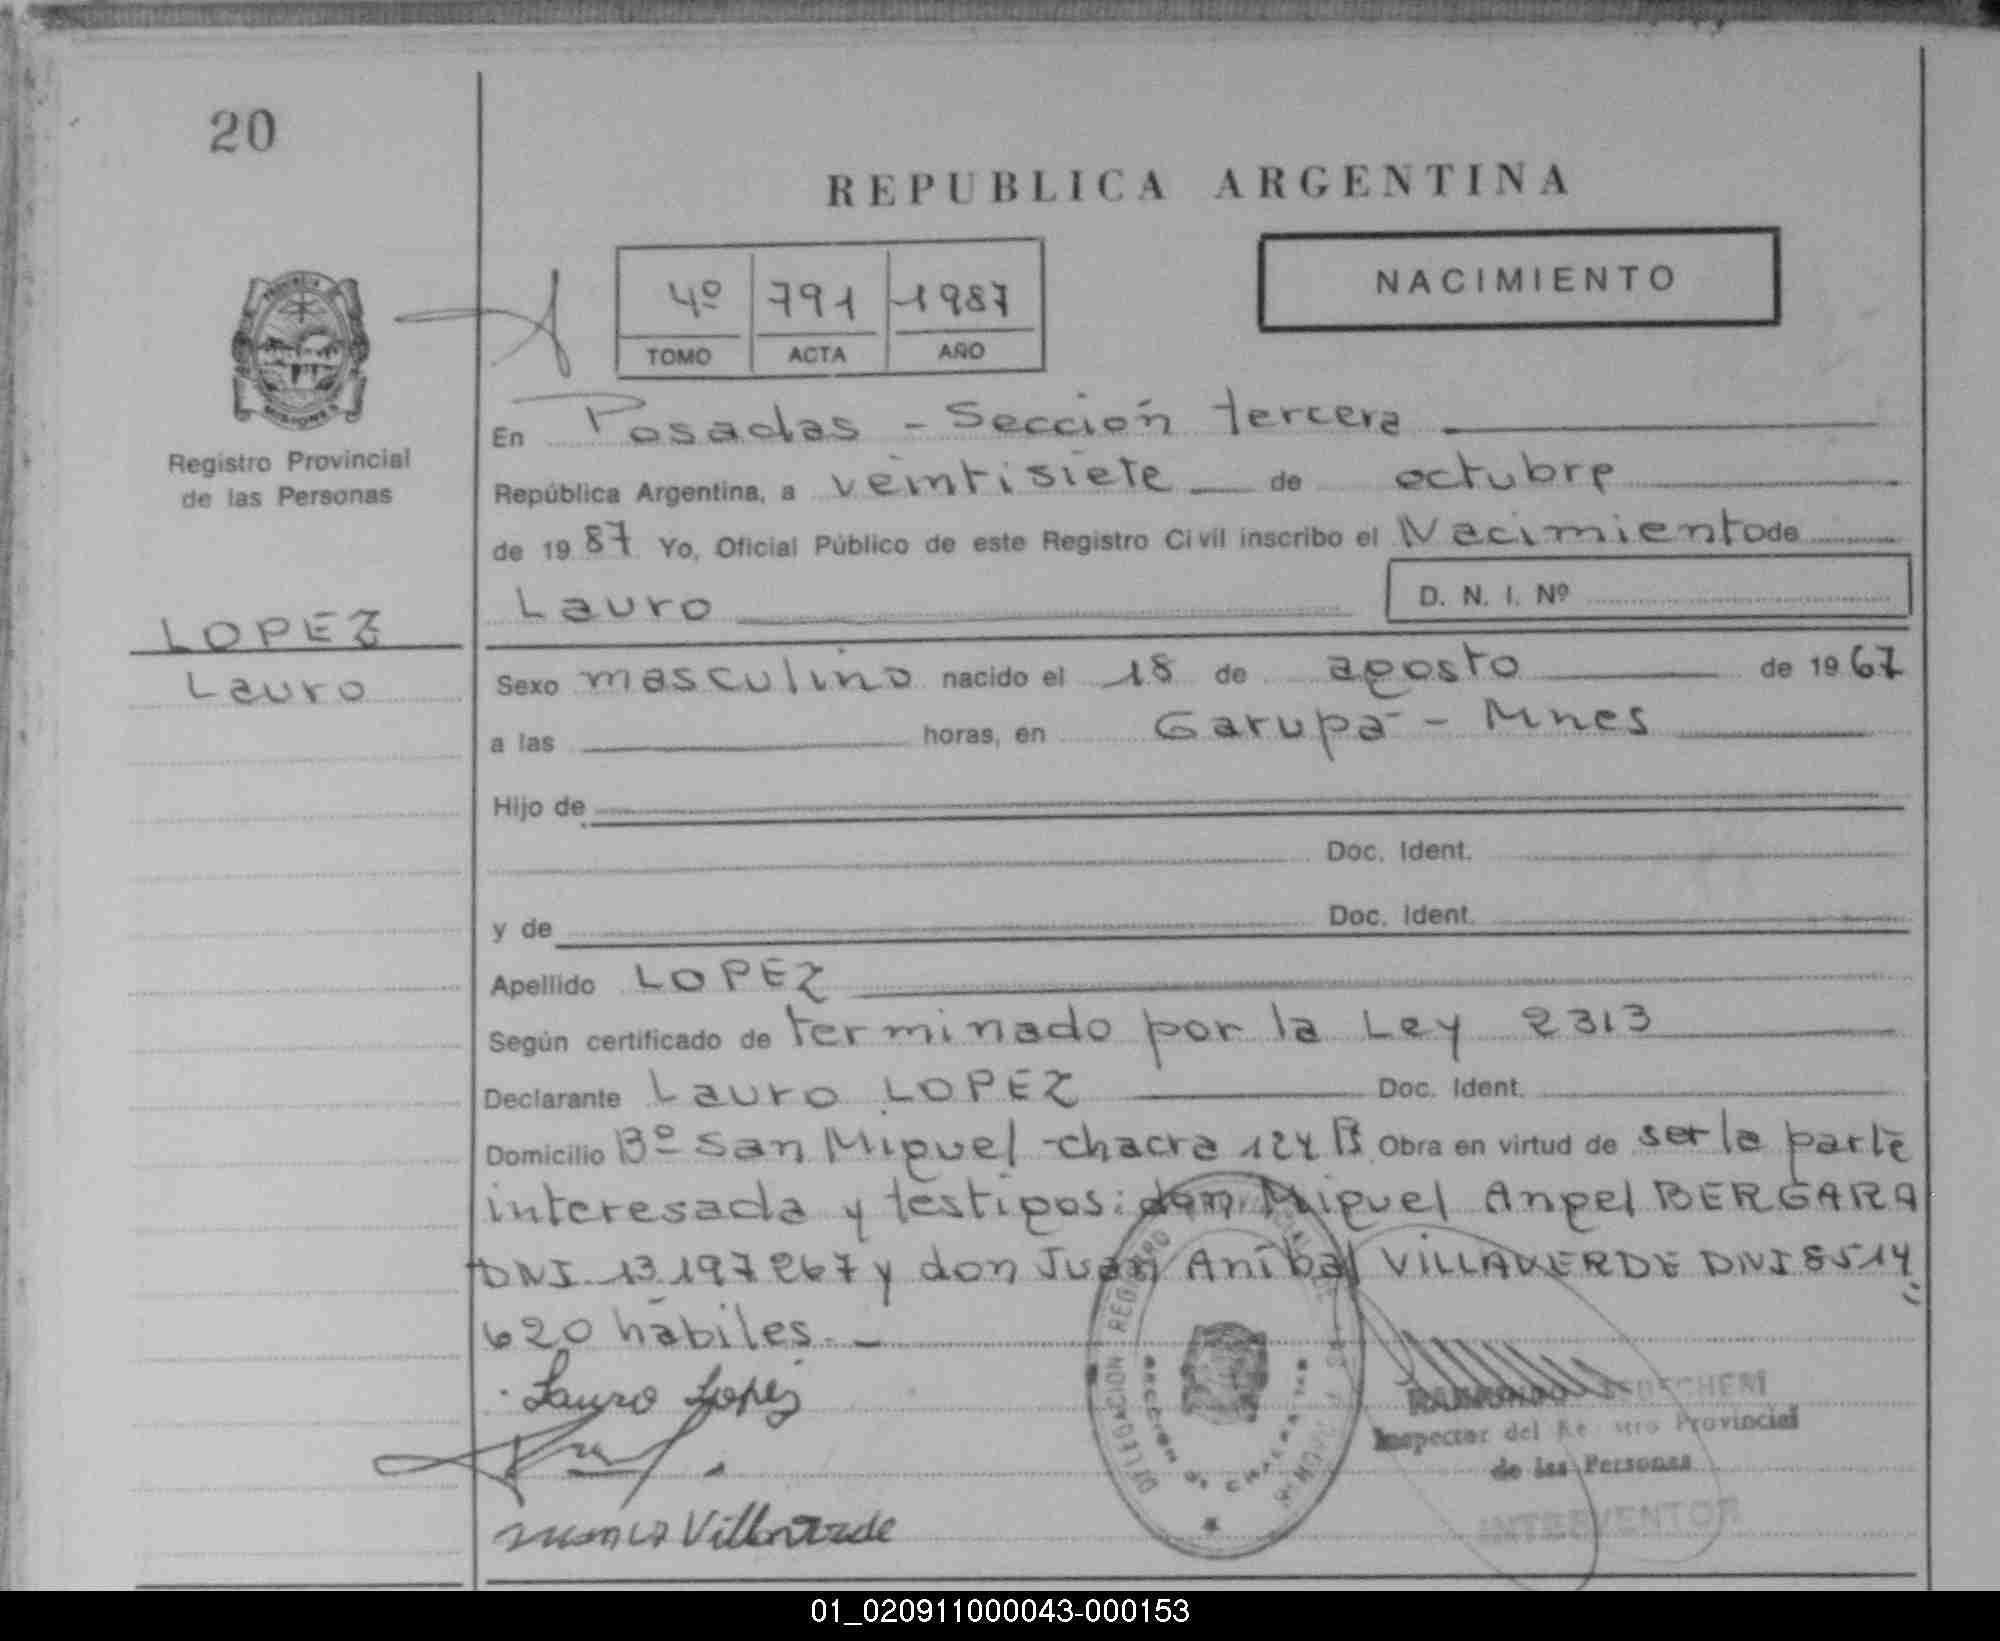 20
REPUBLICA ARGENTINA
4º 791 1987
TOMO ACTA AÑO
NACIMIENTO
Registro Provincial
de las Personas
LOPEZ
Lauro
En Posadas - Sección tercera
República Argentina, a veintisiete de octubre
de 1987 Yo, Oficial Público de este Registro Civil inscribo el Nacimiento de
Lauro D. N. I. Nº
Sexo masculino nacido el 18 de agosto de 1967
a las horas, en Garupa - Mnes
Hijo de
Doc. Ident.
y de Doc. Ident.
Apellido LOPEZ
Según certificado de terminado por la Ley 2313
Declarante Lauro LOPEZ Doc. Ident.
Domicilio Bº San Miguel - chacra 124 Obra en virtud de ser la parte
interesada y testigos: don Miguel Angel BERGARA
DNI 13197267 y don Juan Aníbal VILLAVERDE DNI 8514
620 hábiles.-
Lauro Lopez
Villaverde
DELEGACION REGISTRO
Inspector del Registro Provincial
de las Personas
INTERVENTOR
01_020911000043-000153